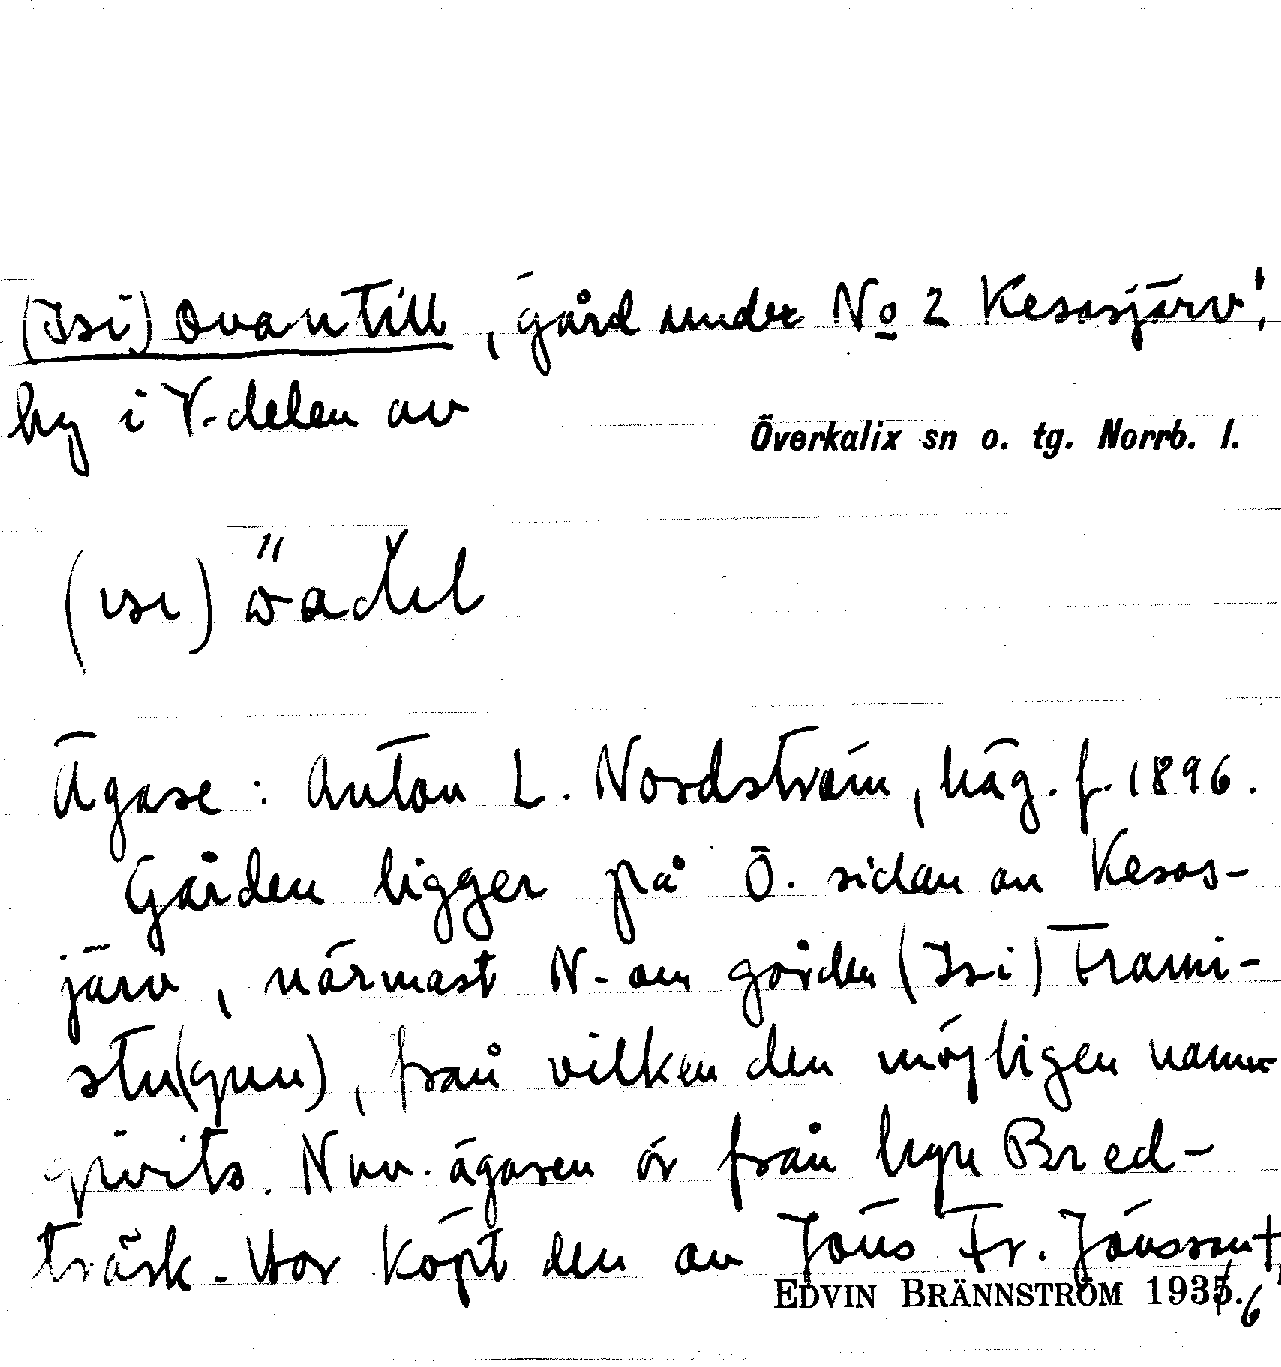 (Isi) Ovantill, gård under No 2 Kesasjärv!
by i V-delen av
Överkalix sn o. tg. Norrb. l.
(isi)
Ägare: Anton L. Nordström, häg. f. 1896.
Gården ligger på Ö. sidan av Kesas-
järv, närmast N-om gården (Isi) Frami-
stu(gun), från vilken den möjligen namn-
givits. Nuv. ägaren är från byn Bred-
träsk. Har köpt den av Jöns Fr. Jönsson†,
EDVIN BRÄNNSTRÖM 1935.6